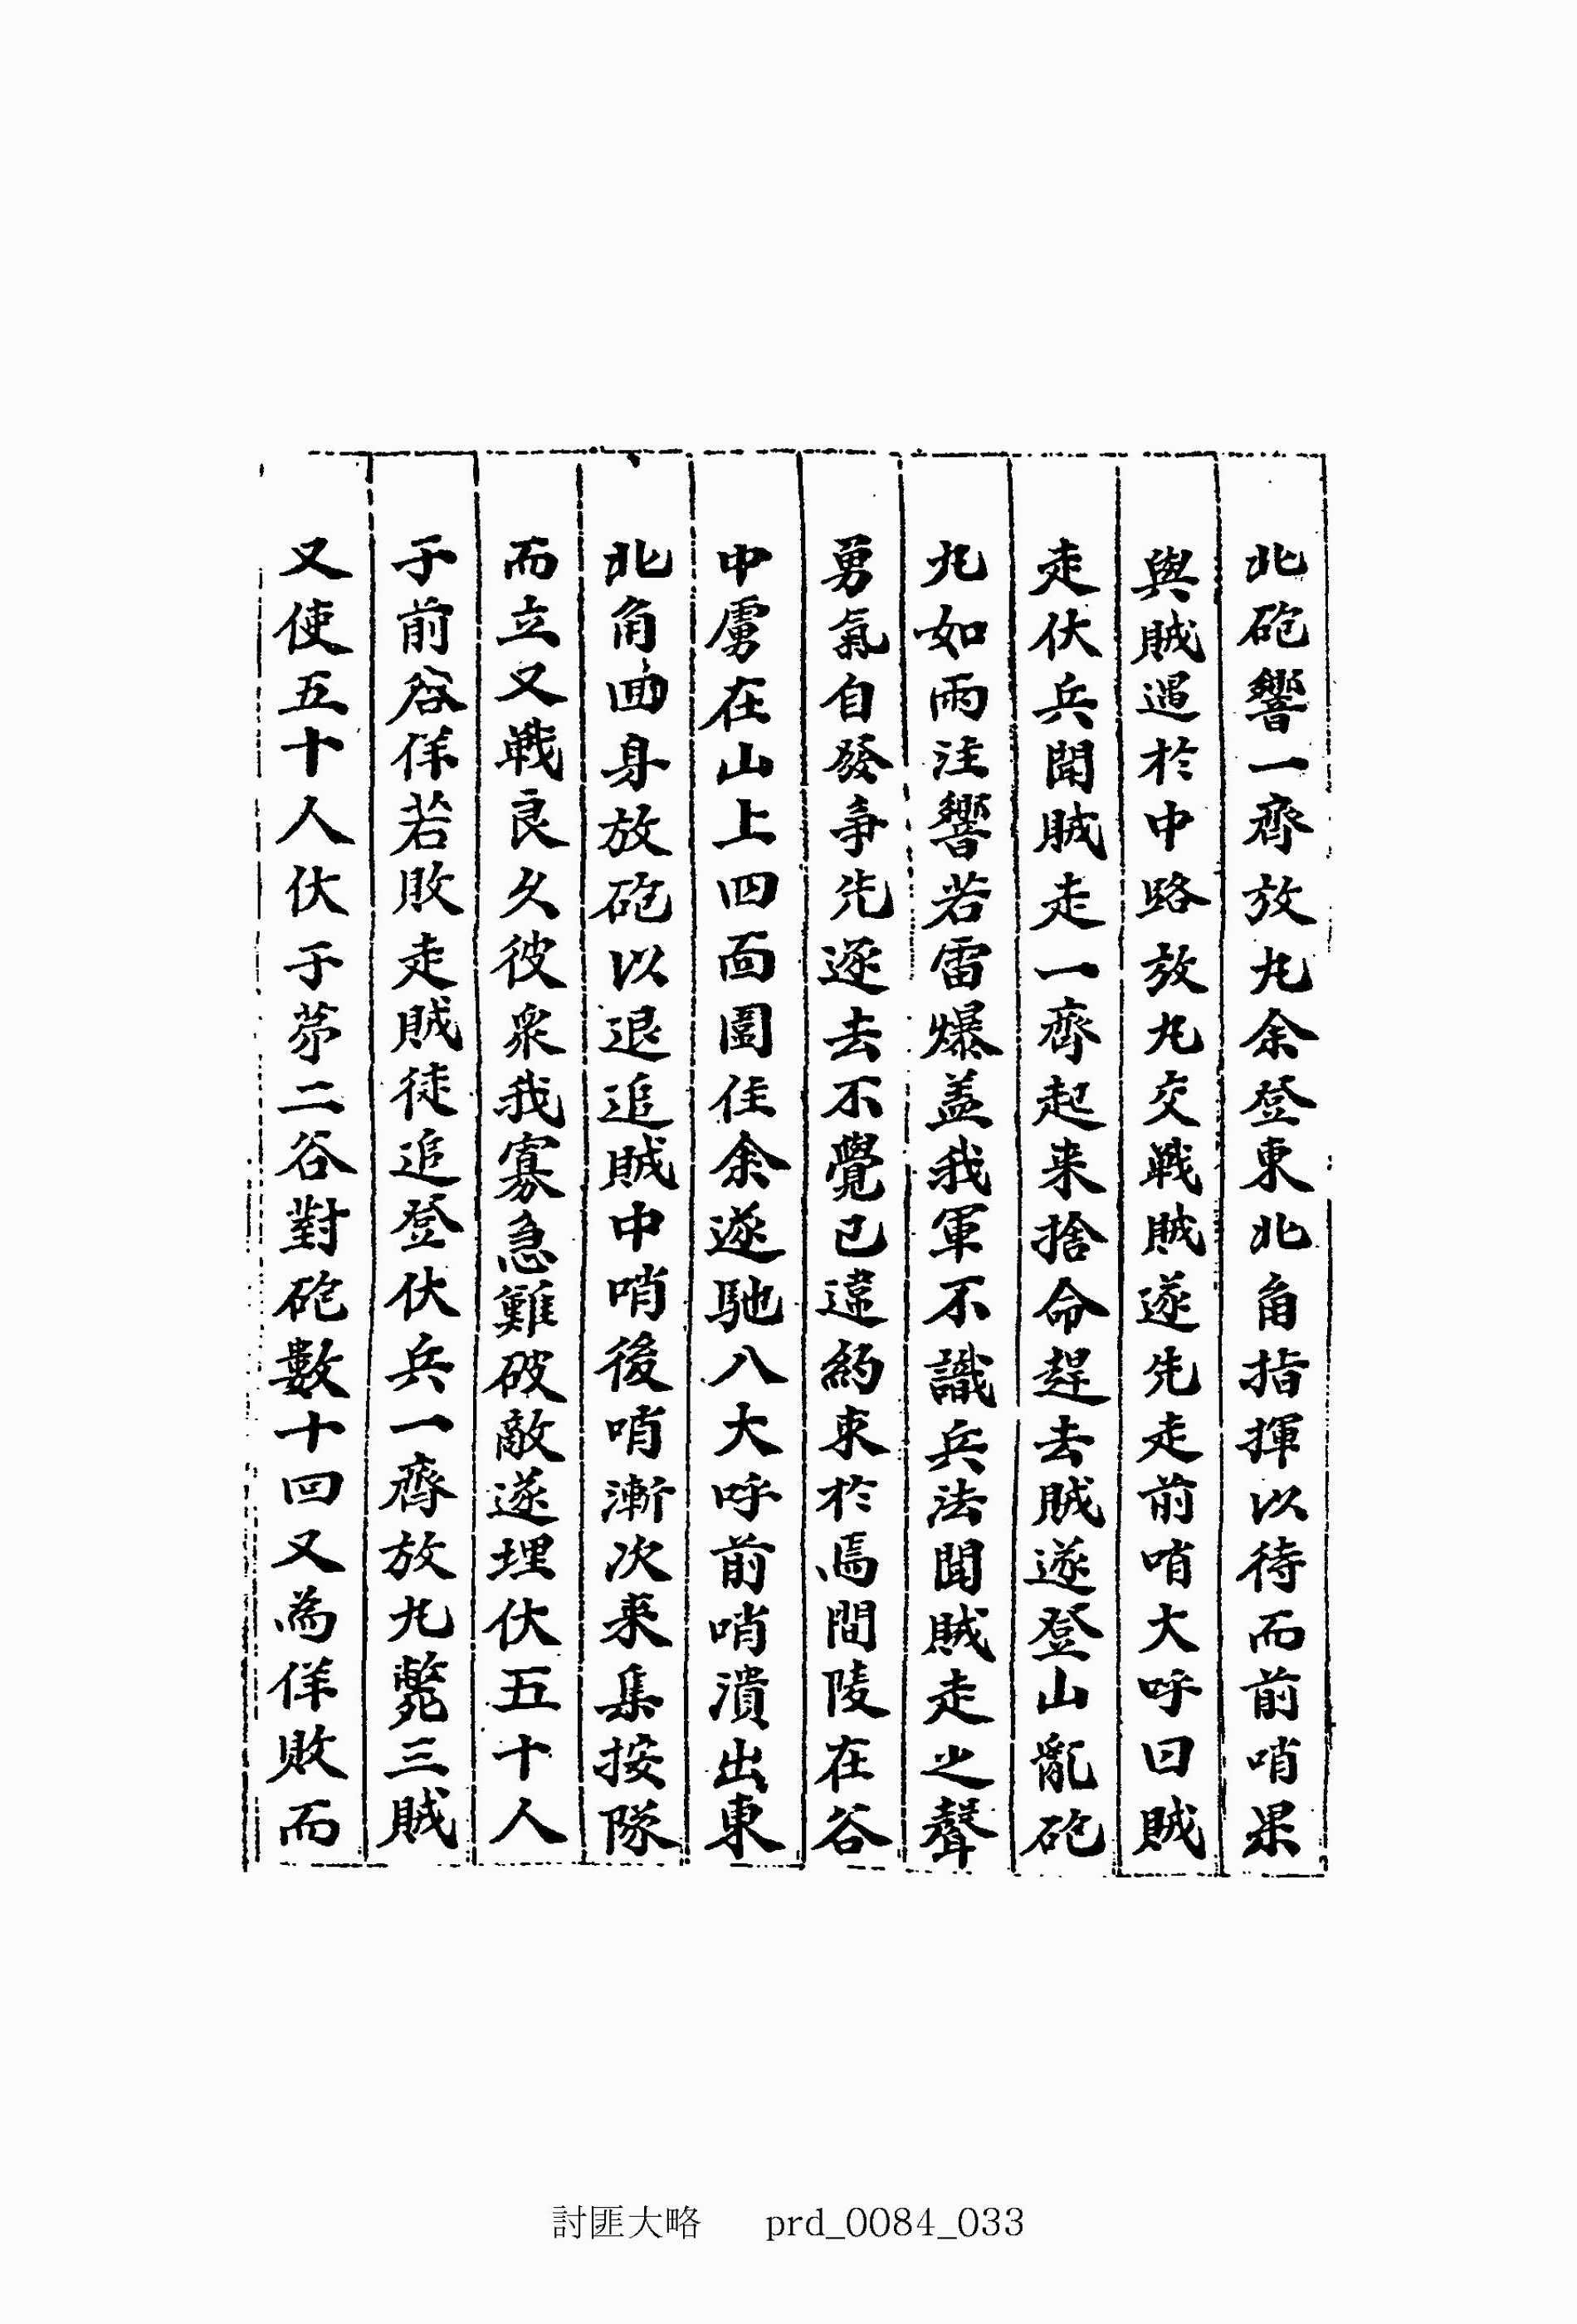 北砲響一齊放丸余登東北角指揮以待而前哨果
與賊遇於中路放丸交戰賊遂先走前哨大呼曰賊
走伏兵聞賊走一齊起来捨命趕去賊遂登山亂砲
丸如雨注響若雷爆盖我軍不識兵法聞賊走之聲
勇氣自發爭先逐去不覺已違約束於焉間陵在谷
中虜在山上四面圍住余遂馳入大呼前哨潰出東
北角回身放砲以退追賊中哨後哨漸次来集按隊
而立又戰良久彼衆我寡急難破敵遂埋伏五十人
于前谷佯若敗走賊徒追登伏兵一齊放丸斃三賊
又使五十人伏于茅二谷對砲數十回又為佯敗而
討匪大略 prd_0084_033